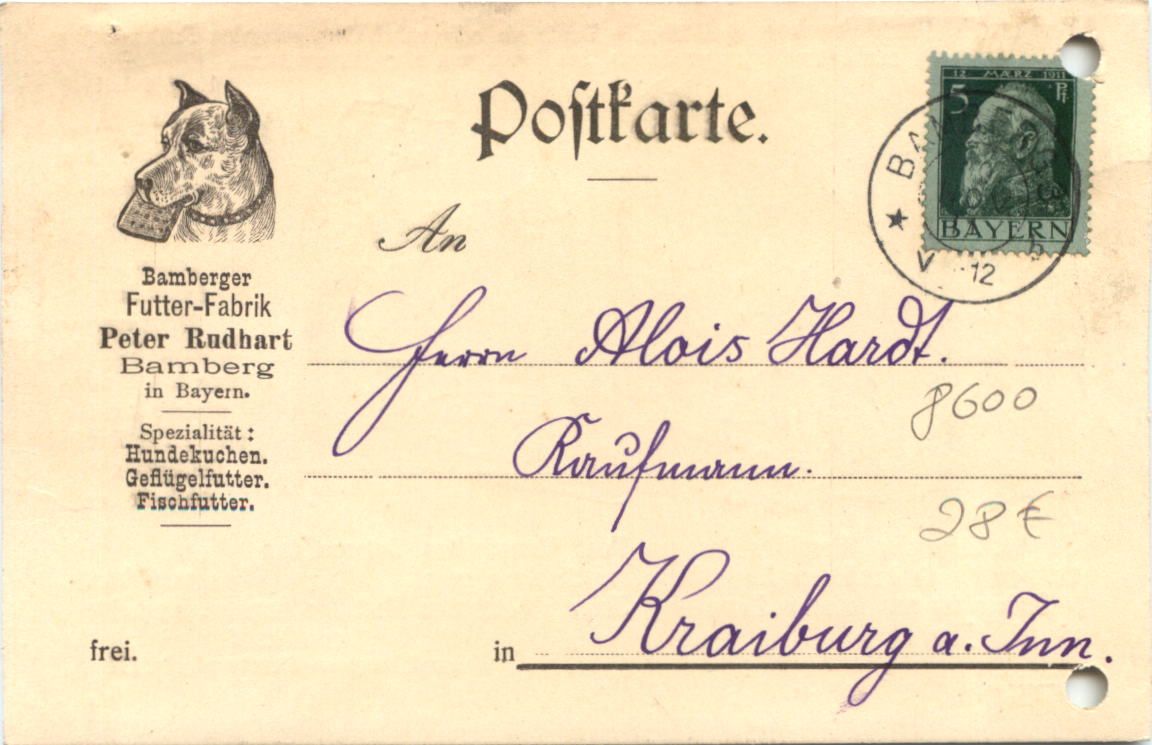 Postkarte.
12 MÄRZ 1911
5 Pf
BAYERN
V 12
An
Bamberger
Futter-Fabrik
Peter Rudhart
Bamberg
in Bayern.
Spezialität:
Hundekuchen.
Geflügelfutter.
Fischfutter.
Herrn Alois Hardt.
8600
Kaufmann.
28 €
frei.
in Kraiburg a. Inn.